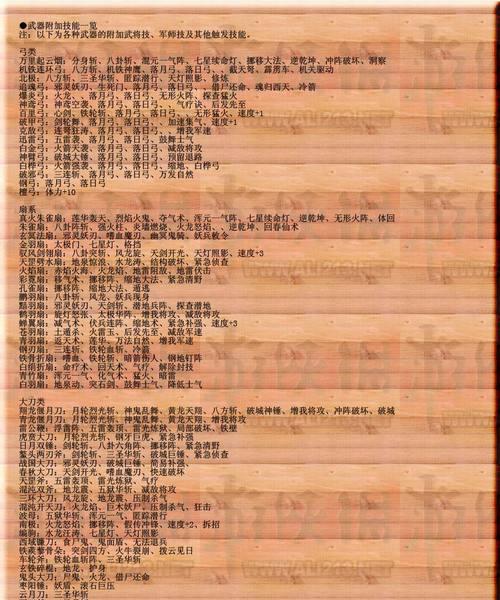 ●武器附加技能一览
注：以下为各种武器的附加武将技、军师技及其他触发技能。
弓类
万里起云烟：分身斩、八卦斩、混元一气阵、七星续命灯、挪移大法、逆乾坤、冲阵破坏、洞察
机铁连环弓：八方斩、机铁神鹰、落月弓、落日弓、、截天弩、霹雳车、机关驱动
北极：八方斩、三圣华斩、匿踪潜行、天灯照影、修炼
追魂弓：邪灵妖刃、生死门、落月弓、落日弓、、借尸还命、魂归西天、冷箭
爆炎弓：火龙、、落月弓、落日弓、、无形火阵、探查猛火
神鸢弓：神鸢空袭、落月弓、落日弓、、气疗诀、后发先至
百里弓：心剑、铁轮斩、落月弓、落日弓、、无形猛火、速度+1
破甲弓：剑轮舞、落月弓、落日弓、、加速集气、速度+1
克敌弓：连弩狂涛、落月弓、落日弓、、增我军速
迅雷弓：五雷轰、落月弓、落日弓、鼓舞士气
白金弓：火箭天袭、落月弓、落日弓、减敌将攻
神臂弓：破城大锤、落月弓、落日弓、预留退路
白桦弓：火箭强袭、落月弓、落日弓、缩地、白桦弓
破邪弓：三连斩、落月弓、落日弓、万发自然
钢弓：落月弓、落日弓
檀弓：体力+10
扇系
真火朱雀扇：莲华轰天、烈焰火鬼、夺气术、浑元一气阵、七星续命灯、逆乾坤、无形火阵、体回
朱雀扇：八阵斩、强火柱、炎墙燃烧、火龙怒焰、、逆乾坤、回春仙术
玄冥法扇：邪灵妖刃、嗜血魔刃、幽冥鬼骑、妖兵敕令
金羽扇：太极门、七星灯、格挡
驭风剑翎扇：八卦突斩、风龙旋、天剑开光、天灯照影、速度+3
天罡劈水扇：地泉惊浪、水龙涛、结构破坏、紧急侦查
火焰扇：赤焰火海、火龙焰、地雷阻敌、地雷伏击
彩霓扇：移气术、挪移阵、缩地大法、紧急清野
孔雀扇：挪移阵、缩地大法、遁逃
鹏羽扇：八卦斩、风龙、妖兵现身
黯羽扇：邪灵妖刃、天剑斩、潜地兵阵、探查潜地
鹤羽扇：旋灯怒张、太极华阵、增我将攻、减敌将攻
蝉翼扇：减气术、伏兵连阵、缩地术、紧急补强、速度+3
苍羽扇：土遁杀、火雷玉、后发先至、减敌军速
青羽扇：返天术、莲华、万法自然、增我军速
钢刃扇：三连斩、铁轮血斩、冷箭
铁骨折扇：嗜血、铁轮斩、暗箭伤人、钢地钉阵
白绢折扇：命疗术、回天术、气疗、解除封技
青竹扇：浑元一气、化气术、猛火、暗雷
白羽扇：地泉动、突石剑、鼓舞士气、降低士气
大刀类
翔龙偃月刀：月轮烈光斩、神鬼乱舞、黄龙天翔、八方斩、破城神锤、增我将攻、冲阵破坏、破城
青龙偃月刀：月轮烈光斩、神鬼乱舞、黄龙天翔、增我将攻
雷公鞭：浮雷阵、五雷轰顶、雷光炼狱、局部破坏、铁壁
虎贲大刀：月轮烈光斩、钢牙巨虎、紧急补强
日月双锤：剑轮斩、八卦六角阵、挪移阵、紧急清野
鳌头两刃斧：剑轮斩、三圣华斩、破城巨锤、紧急侦查
战国大刀：邪灵妖刃、破城巨锤、简易补强、
春秋大刀：天剑开光、嗜血魔刃、快速破坏
天罡斧：五雷轰顶、雷光炼狱、气疗
混沌双斧：地龙震、五狱华斩、减敌将攻
三环大刀：风龙旋、地龙震、压制杀气
混沌开天刀：火龙焰、巨木妖尸、压制杀气、狂击
波母：五狱华斩、浑元一气、匿踪潜行
南极：火龙怒焰、挪移阵、假传冲锋、速度+2、拆招
编驹：水龙汪涛、七星灯、天灯照影
西域镰刀：食尸鬼、鬼面盾、无法退兵
铁蒺藜骨朵：突剑四方、火牛裂崩、拨云见日
车轮斧：铁轮血斩阵、三圣华斩
玄铁碎棍：地龙、护身
鬼头大刀：尸鬼、火龙、借尸还命
枣阳锤：妖盾、滚石巨压
云月刀：三圣华斩